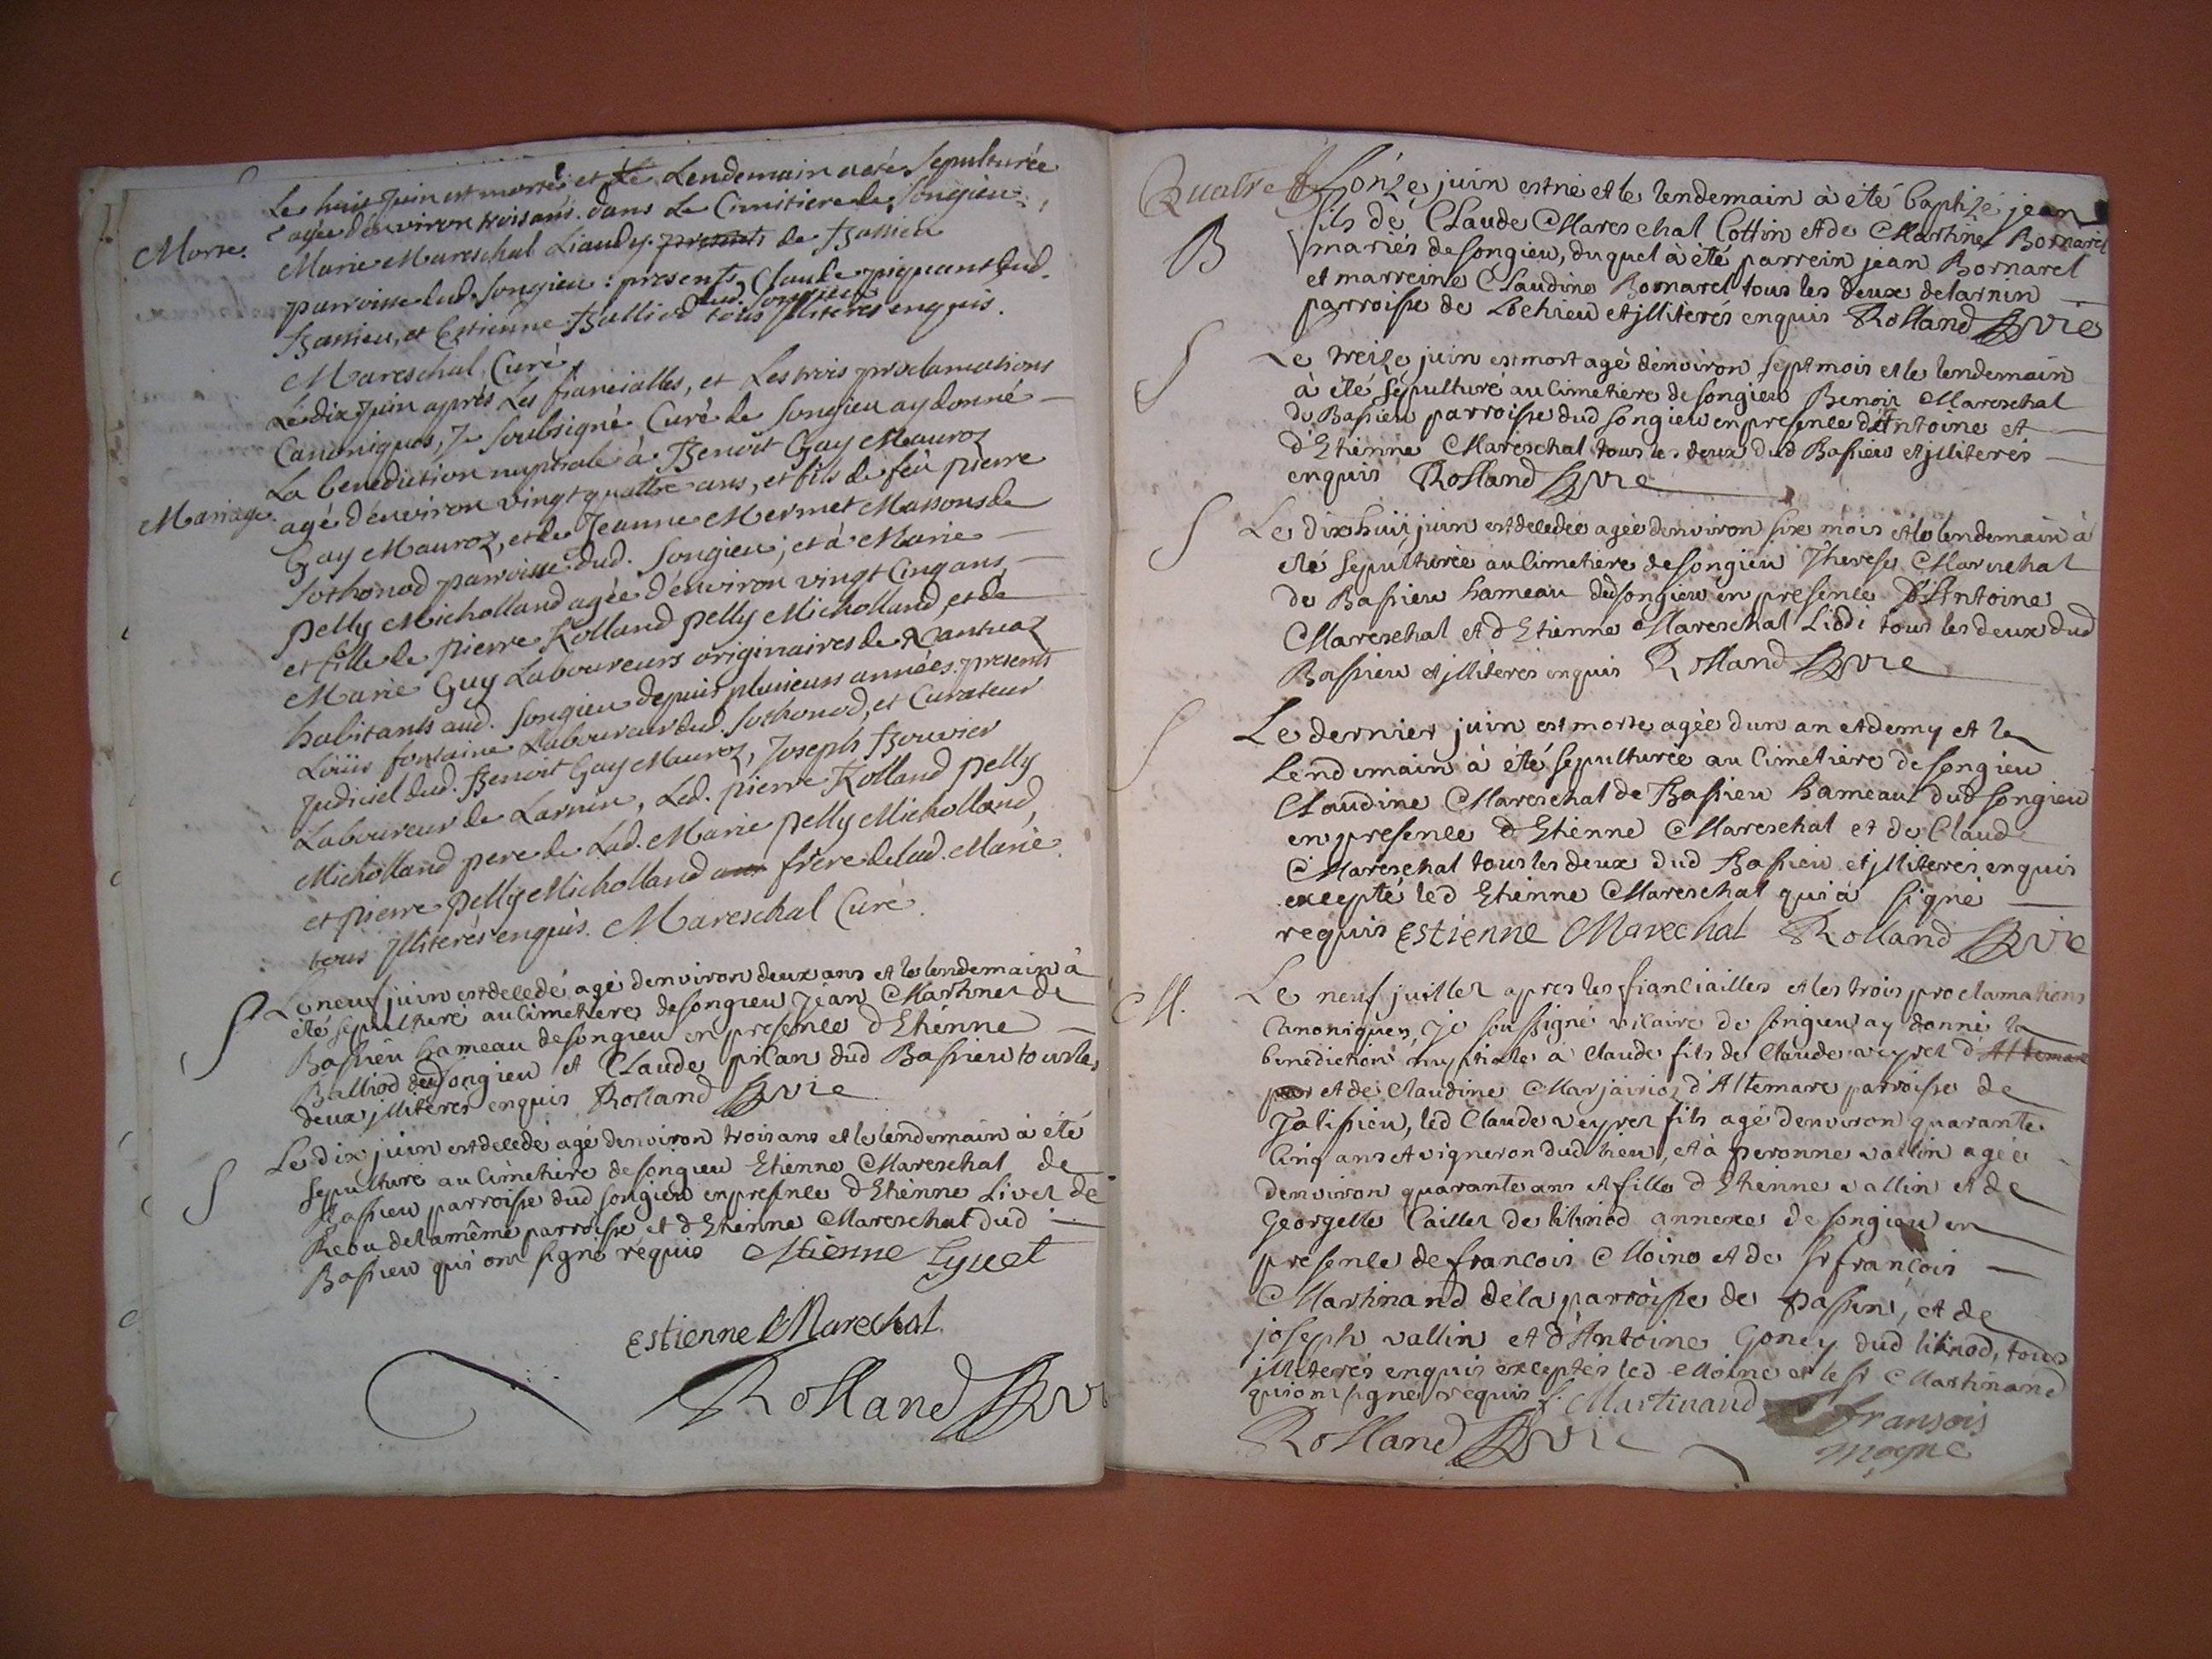 Le huit juin est morte et Le Lendemain a eté Sepulturée
agée d'environ trois ans. dans Le Cimitiere de Songieu
Morte.
Marie Mareschal Liaudy. presents de Bassieu
parroisse dud. Songieu : presents, Claude piquant dud.
dud. Songieu
Bassieu, et Estienne Balliod tous Jlliterés enquis.
Mareschal Curé
Le dix Juin aprés Les fiancialles, et Les trois proclamations
Canoniques, Je Soubsigné Curé de Songieu ay donné
La benediction nuptiale à Benoit Gay Mauroz
Mariage.
agé d'environ vingt quattre ans, et fils de feu pierre
Gay Mauroz, et de Jeanne Mermet Massons de
Sothonod parroisse dud. Songieu ; et à Marie
pelly Micholland agée d'environ vingt Cinq ans,
et fille de pierre Rolland pelly Micholland, et de
Marie Guy Laboureurs originaires de Nantuaz
habitants aud. Songieu depuis plusieurs années. presents
Loüis fontaine Laboureur dud. Sothonod, et Curateur
Judiciel dud. Benoit Gay Mauroz, Joseph Bouvier
Laboureur de Larnin, Led. pierre Rolland pelly
Micholland pere de Lad. Marie pelly Micholland,
et pierre pelly Micholland frere de lad. Marie
tous Jlliterés enquis. Mareschal Curé.
S
Le neuf juin est decedé agé denviron deux ans et le lendemain à
été sepulturé au Cimetiere de songieu Jean Martinet de
Bassieu hameau de songieu en presence d'Etienne
Balliod dud songieu et Claude pican dud Bassieu tous les
deux jlliterés enquis Rolland vic
S
Le dix juin est decedé agé denviron trois ans et le lendemain à été
sepulturé au Cimetiere de songieu Etienne Mareschal de
Bassieu parroisse dud songieu en presence d'Etienne Livet de
de la même parroisse et d'Etienne Mareschal dud
Bassieu qui ont signé requis Etienne Lyuet
Estienne Marechal
Rolland
Quatre
B
L'onze juin est né et le lendemain à été baptizé jean
fils de Claude Mareschal Cottin et de Martine Bornarel
mariés de songieu, duquel à été parrein jean Bornarel
et marreine Claudine Bornarel tous les deux de larnin
parroisse de Lochieu et jlliterés enquis Rolland vic
S
Le treize juin est mort agé denviron sept mois et le lendemain
à été sepulturé au Cimetiere de songieu Benoit Mareschal
de Bassieu parroisse dud songieu en presence d'Antoine et
d'Etienne Mareschal tous les deux dud Bassieu et jlliterés
enquis Rolland vic
S
Le dix huit juin est decedée agée denviron six mois et le lendemain à
eté sepulturée au Cimetiere de songieu Therese Mareschal
de Bassieu hameau dud songieu en presence D'Antoine
Mareschal et d'Etienne Mareschal Liodi tous les deux dud
Bassieu et jlliterés enquis Rolland vic
S
Le dernier juin est morte agée dun an et demy et le
lendemain à été sepulturée au Cimetiere de songieu
Claudine Mareschal de Bassieu hameau dud songieu
en presence d'Etienne Mareschal et de Claude
Mareschal tous les deux dud Bassieu et jlliterés enquis
excepté led Etienne Mareschal qui à signé
requis Estienne Marechal Rolland vic
M.
Le neuf juillet apres les fianciailles et les trois proclamations
Canoniques, Je soussigné vicaire de songieu ay donné la
benediction nuptiale à Claude fils de Claude veyret d'Altemare
et de Claudine Marjairioz d'Altemare parroisse de
Talissieu, led Claude veyret fils agé denviron quarante
cinq ans et vigneron dud lieu, et à peronne vallin agée
denviron quarante ans et fille d'Etienne vallin et de
Georgette Caillet de lilinod annexe de songieu en
presence de francois Moine et de sr françois
Martinand de la parroisse de passin, et de
joseph vallin et d'Antoine Goney dud lilinod, tous
jlliterés enquis exceptés led Moine et le sr Martinand
qui ont signé requis f. Martinand fransois
moyne
Rolland vic